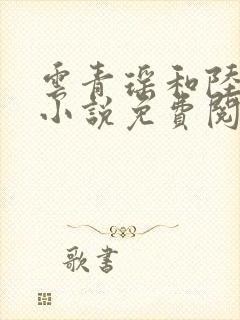 雲青瑤和陸
小說免費閱
歌書